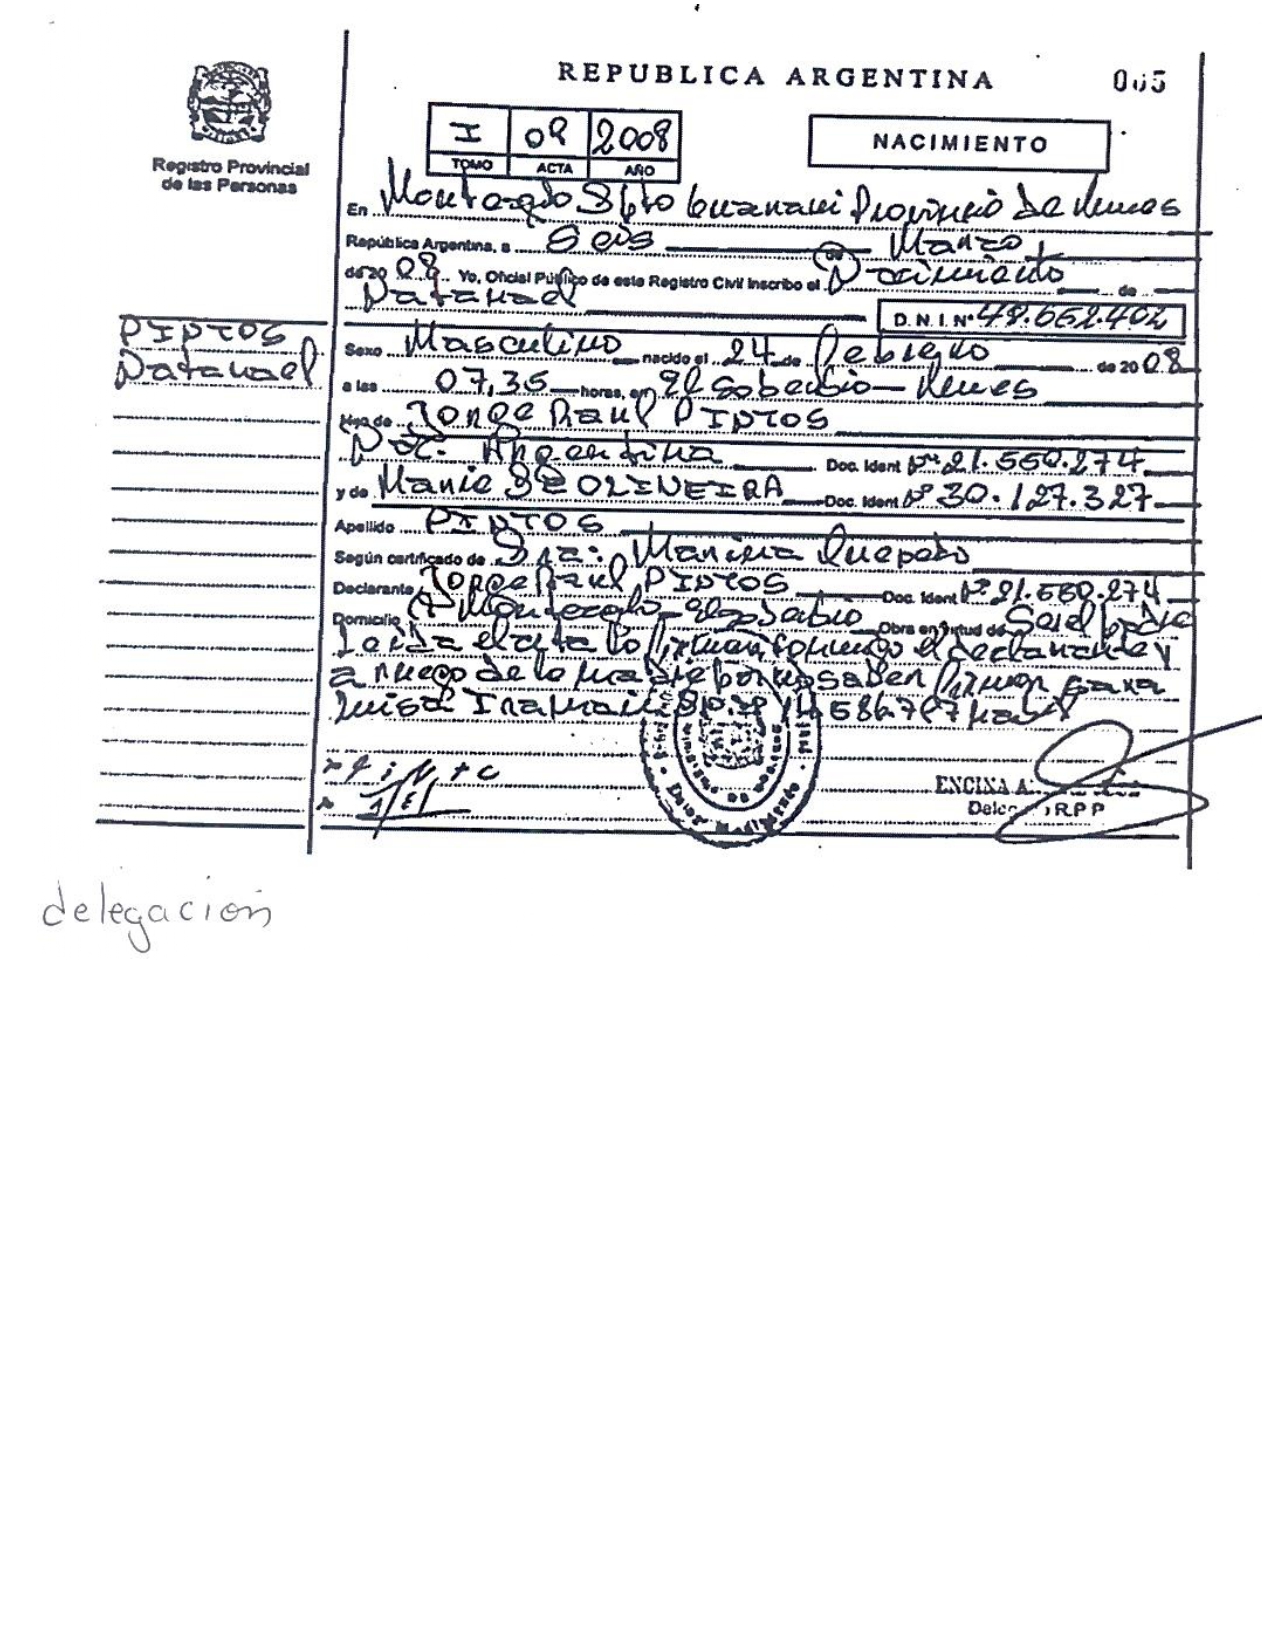 REPUBLICA ARGENTINA
Registro Provincial
de las Personas
I 09 2008
TOMO ACTA AÑO
NACIMIENTO
En Dpto Guarani Provincia de
República Argentina, a Seis de Marzo
de 20 08 Yo, Oficial Público de este Registro Civil Inscribo el Nacimiento de
Natanael
D.N.I. Nº 48.662.402
PINTOS
Natanael
Sexo Masculino nacido el 24 de Febrero de 2008
a las 07,35 horas, en El Soberbio
Hijo de Jorge Raul PINTOS
Nac. Argentina Doc. Ident Nº 21.550.274
y de DE OLIVEIRA Doc. Ident Nº 30.127.327
Apellido PINTOS
Según certificado de Dra: Quepedo
Declarante Jorge Raul PINTOS Doc. Ident Nº 21.550.274
Domicilio Obra en virtud de Ser el padre
Leida el acta la firman conmigo el declarante y
a ruego de la madre por no saber firmar
Luisa
ENCINA A.
R.P.P
delegación